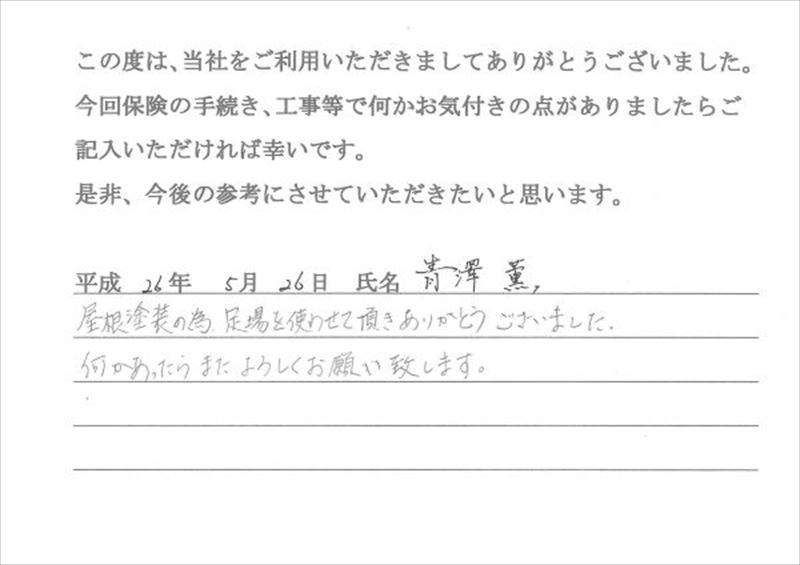 この度は、当社をご利用いただきましてありがとうございました。
今回保険の手続き、工事等で何かお気付きの点がありましたらご
記入いただければ幸いです。
是非、今後の参考にさせていただきたいと思います。
平成 26年 5月 26日 氏名 青澤 薫
屋根塗装の為、足場を使わせて頂きありがとうございました。
何かあったらまたよろしくお願い致します。